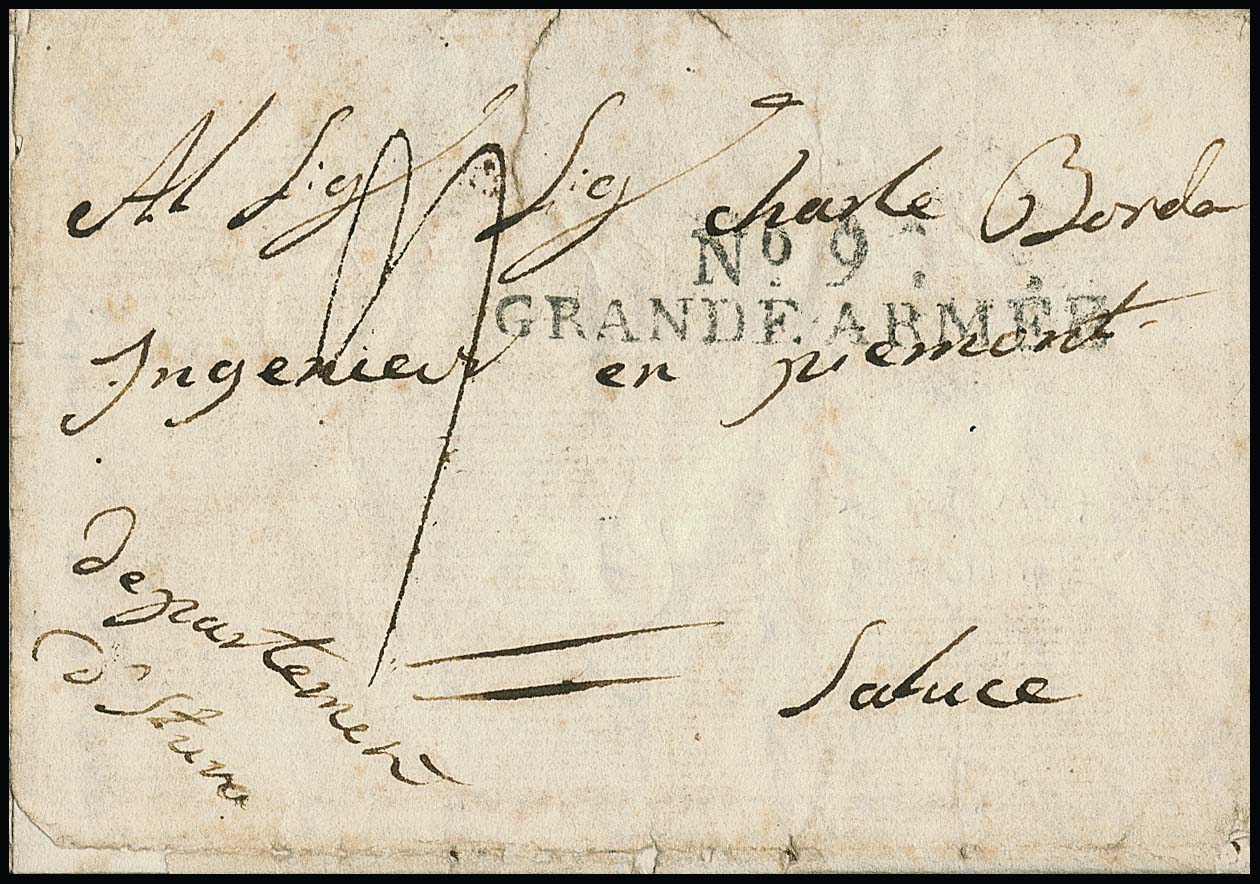 Al Sig Sig Charle Borda
No. 9.
GRANDE ARMÉE
Ingenieur en piemont
departement
D'Stura
Saluce